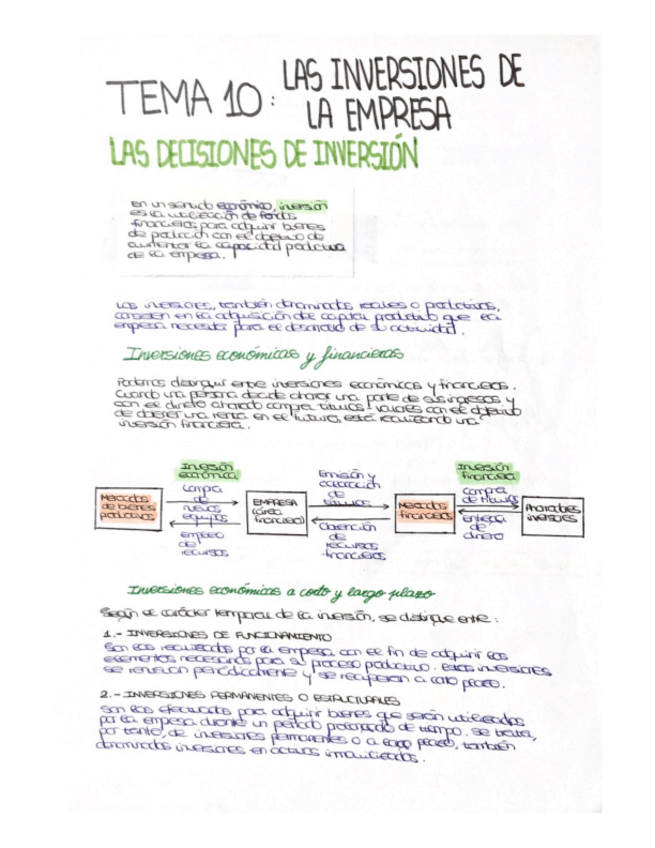 TEMA 10: LAS INVERSIONES DE
LA EMPRESA
LAS DECISIONES DE INVERSIÓN
En un sentido económico, inversión
es la utilización de fondos
financieros para adquirir bienes
de producción con el objetivo de
aumentar la capacidad productiva
de la empresa.
Las inversiones, también denominadas reales o productivas,
consisten en la adquisición de capital productivo que la
empresa necesita para el desarrollo de su actividad.
Inversiones económicas y financieras
Podemos distinguir entre inversiones económicas y financieras.
Cuando una persona decide ahorrar una parte de sus ingresos y
con el dinero ahorrado compra títulos-valores con el objetivo
de obtener una renta en el futuro, está realizando una
inversión financiera.
Mercados
de bienes
productivos
Inversión
económica
compra
de
nuevos
equipos
empleo
de
recursos
EMPRESA
(área
financiera)
Emisión y
colocación
de
títulos
Obtención
de
recursos
financieros
Mercados
financieros
Inversión
financiera
compra
de títulos
entrega
de
dinero
Ahorradores
inversores
Inversiones económicas a corto y largo plazo
Según el carácter temporal de la inversión, se distingue entre:
1.- INVERSIONES DE FUNCIONAMIENTO
Son las realizadas por la empresa con el fin de adquirir los
elementos necesarios para su proceso productivo. Estas inversiones
se renuevan periódicamente y se recuperan a corto plazo.
2.- INVERSIONES PERMANENTES O ESTRUCTURALES
Son las efectuadas para adquirir bienes que serán utilizados
por la empresa durante un período prolongado de tiempo. Se trata,
por tanto, de inversiones permanentes o a largo plazo, también
denominadas inversiones en activos inmovilizados.